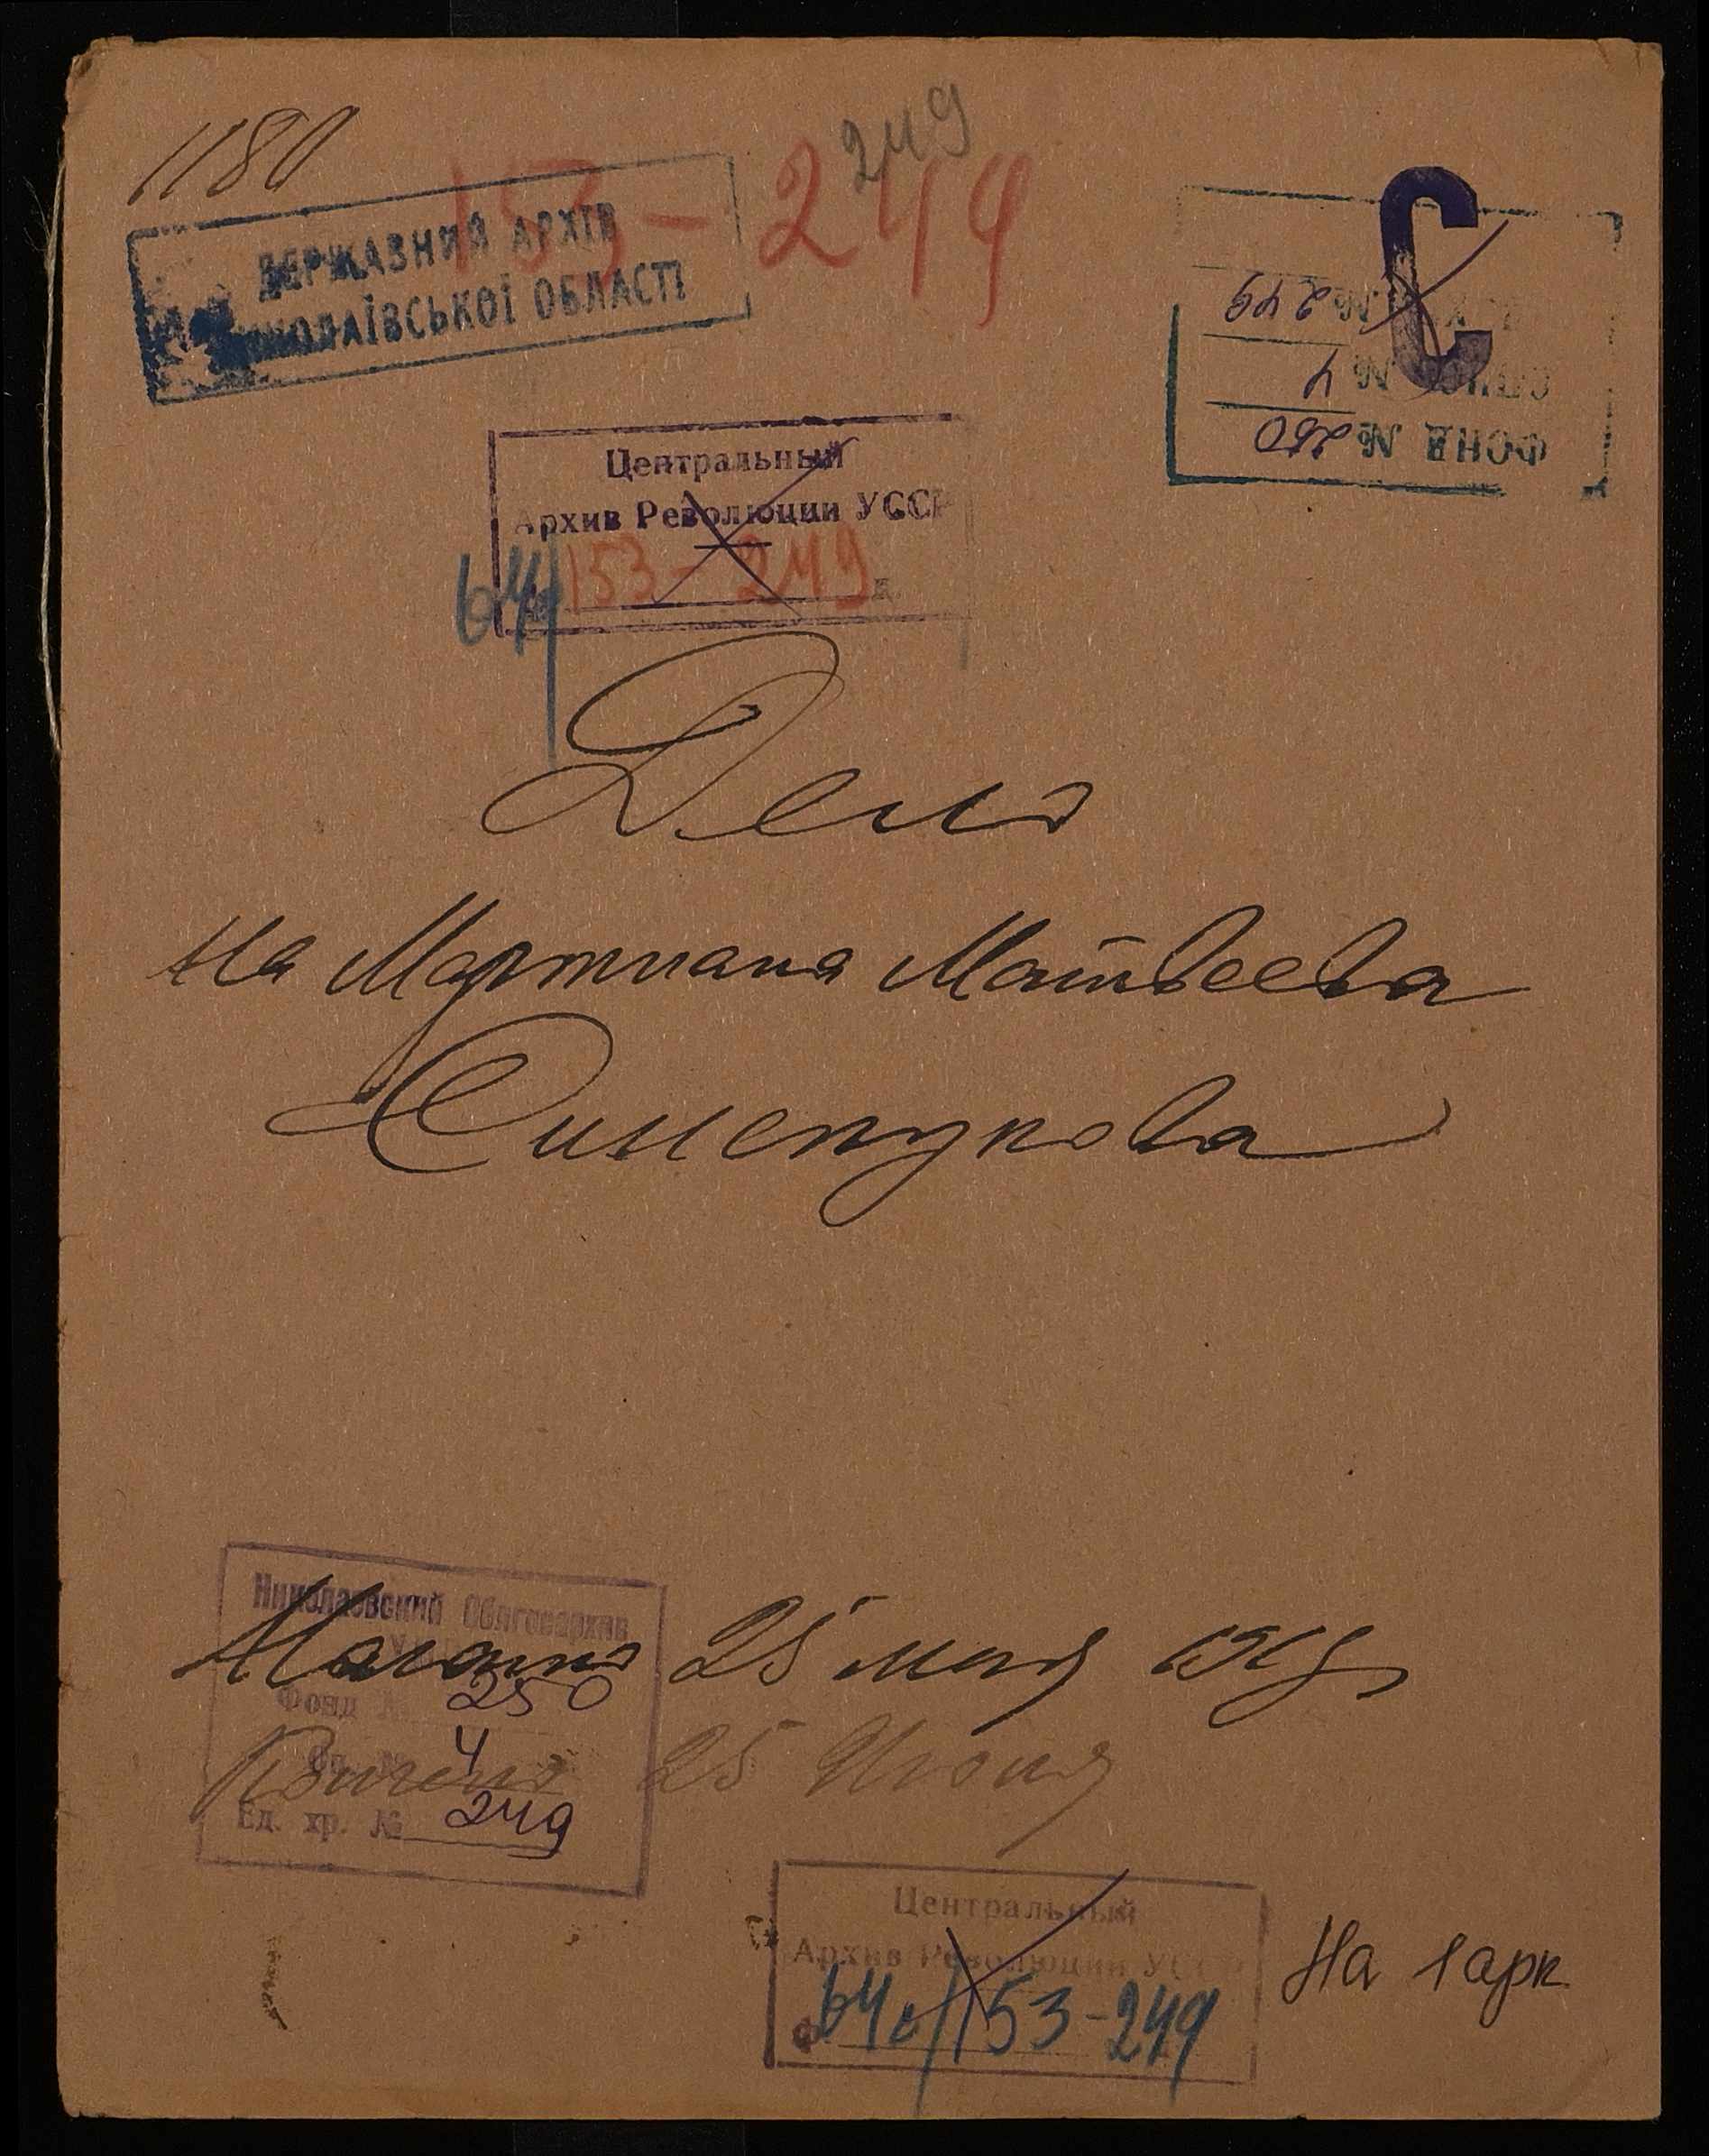 1180
249
153-249
ДЕРЖАВНИЙ АРХІВ
МИКОЛАЇВСЬКОЇ ОБЛАСТІ
С
ФОНД № 250
ОПИСЬ № 4
№ 249
Центральный
Архив Революции УССР
64 153-249
Дело
На Мартиана Матвеева
Синепупова
Николаевский Облгосархив
Начато 25 мая
Фонд № 250
Оп. № 4
Кончено 25 Июня
Ед. хр. № 249
Центральный
Архив Революции УССР
Ф 64 153-249
На 1 арк